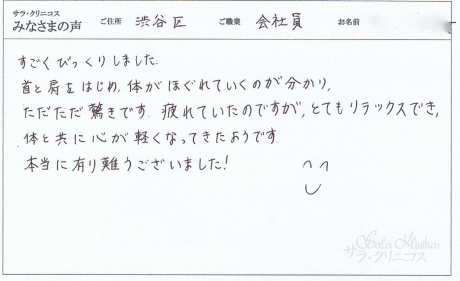 サラ・クリニコス
みなさまの声 ご住所 渋谷区 ご職業 会社員 お名前
すごくびっくりしました.
首と肩をはじめ、体がほぐれていくのが分かり,
ただただ驚きです. 疲れていたのですが, とてもリラックスでき,
体と共に心が軽くなってきたようです.
本当に有り難うございました!
Sala Klinikos
サラ・クリニコス